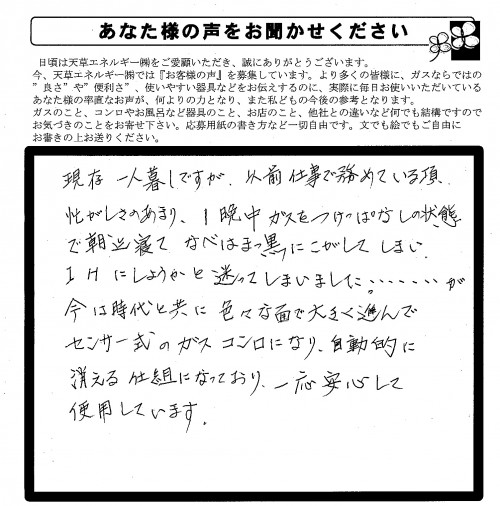 あなた様の声をお聞かせください
日頃は天草エネルギー㈱をご愛顧いただき、誠にありがとうございます。
今、天草エネルギー㈱では『お客様の声』を募集しています。より多くの皆様に、ガスならではの
”良さ”や”便利さ”、使いやすい器具などをお伝えするのに、実際に毎日お使いいただいている
あなた様の率直なお声が、何よりの力となり、また私どもの今後の参考となります。
ガスのこと、コンロやお風呂など器具のこと、お店のこと、他社との違いなど何でも結構ですので
お気づきのことをお寄せ下さい。応募用紙の書き方など一切自由です。文でも絵でもご自由に
お書きの上お送りください。
現在 一人暮しですが、以前仕事で務めている頃、
忙がしさのあまり、1晩中ガスをつけっぱなしの状態
で朝迄寝て なべはまっ黒にこがしてしまい、
IHにしようかと迷ってしまいました。・・・・・・・が
今は時代と共に色々な面で大きく進んで
センサー式のガスコンロになり、自動的に
消える仕組になっており、一応安心して
使用しています。